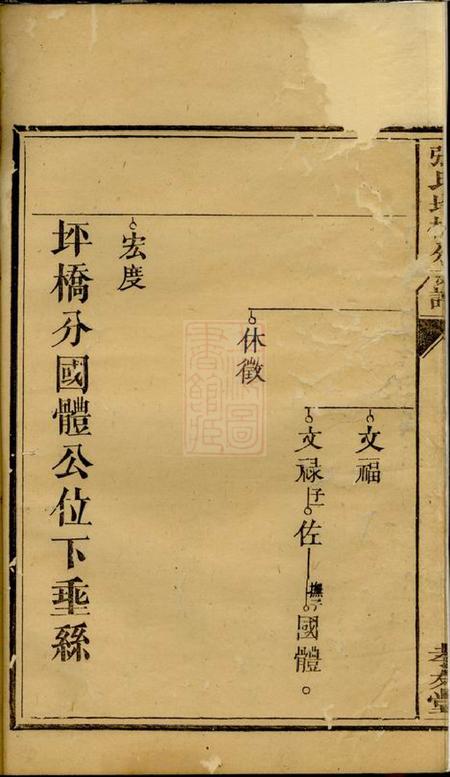 孝友堂
文福
文禄子佐撫子國體。
休徵
宏度
坪橋分國體公位下垂絲